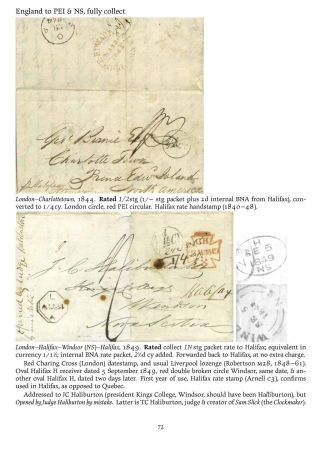 England to PEI & NS, fully collect
Geo. Birnie Esq
Charlotte Town
Prince Edw. Island
North America
London–Charlottetown, 1844. Rated 1/2stg (1/– stg packet plus 2d internal BNA from Halifax), con-
verted to 1/4cy. London circle, red PEI circular. Halifax rate handstamp (1840–48).
Opened by Judge Haliburton
by mistake
J. C. Haliburton
Halifax
Windsor
Nova Scotia
H
SE 5
1849
NS
London–Halifax–Windsor (NS)–Halifax, 1849. Rated collect 1N stg packet rate to Halifax; equivalent in
currency 1/1½; internal BNA rate packet, 2½d cy added. Forwarded back to Halifax, at no extra charge.
Red Charing Cross (London) datestamp, and usual Liverpool lozenge (Robertson M28, 1848–61).
Oval Halifax H receiver dated 5 September 1849, red double broken circle Windsor, same date, & an-
other oval Halifax H, dated two days later. First year of use, Halifax rate stamp (Arnell C3), confirms
used in Halifax, as opposed to Quebec.
Addressed to JC Haliburton (president Kings College, Windsor, should have been Halliburton), but
Opened by Judge Haliburton by mistake. Latter is TC Haliburton, judge & creator of Sam Slick (the Clockmaker).
72